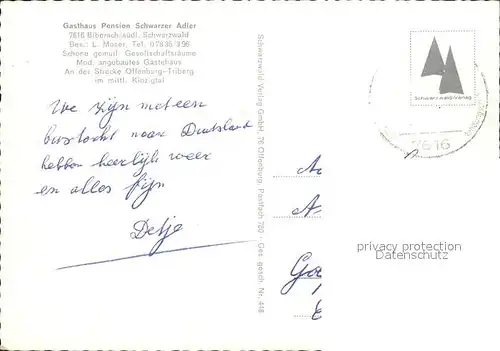 Gasthaus Pension Schwarzer Adler
7616 Biberach/südl. Schwarzwald
Bes.: L. Moser, Tel. 07835/396
Schöne gemütl. Gesellschaftsräume
Mod. angebautes Gästehaus
An der Strecke Offenburg-Triberg
im mittl. Kinzigtal
We zijn met een
bustocht naar Duitsland
hebben heerlijk weer
en alles fijn
Detje
Schwarzwald Verlag GmbH, 76 Offenburg, Postfach 780 · Ges. gesch. Nr. 448
Schwarzwald-Verlag
7616
privacy protection
Datenschutz